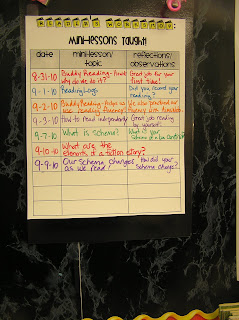 READER'S WORKSHOP:
mini-lessons Taught!
date mini-lesson/ topic reflections/ observations
8-31-10 Buddy Reading - what why do we do it? Great job for your first time!
9-1-10 Reading Logs Did you record your reading?
9-2-10 Buddy Reading - helps us with reading fluency We also practiced our fluency with
9-3-10 How to read independently Great job reading by yourself!
9-7-10 What is schema? What is your schema
9-10-10 What are the elements of a fiction story?
9-9-10 Our schema changes as we read! How did your schema change?